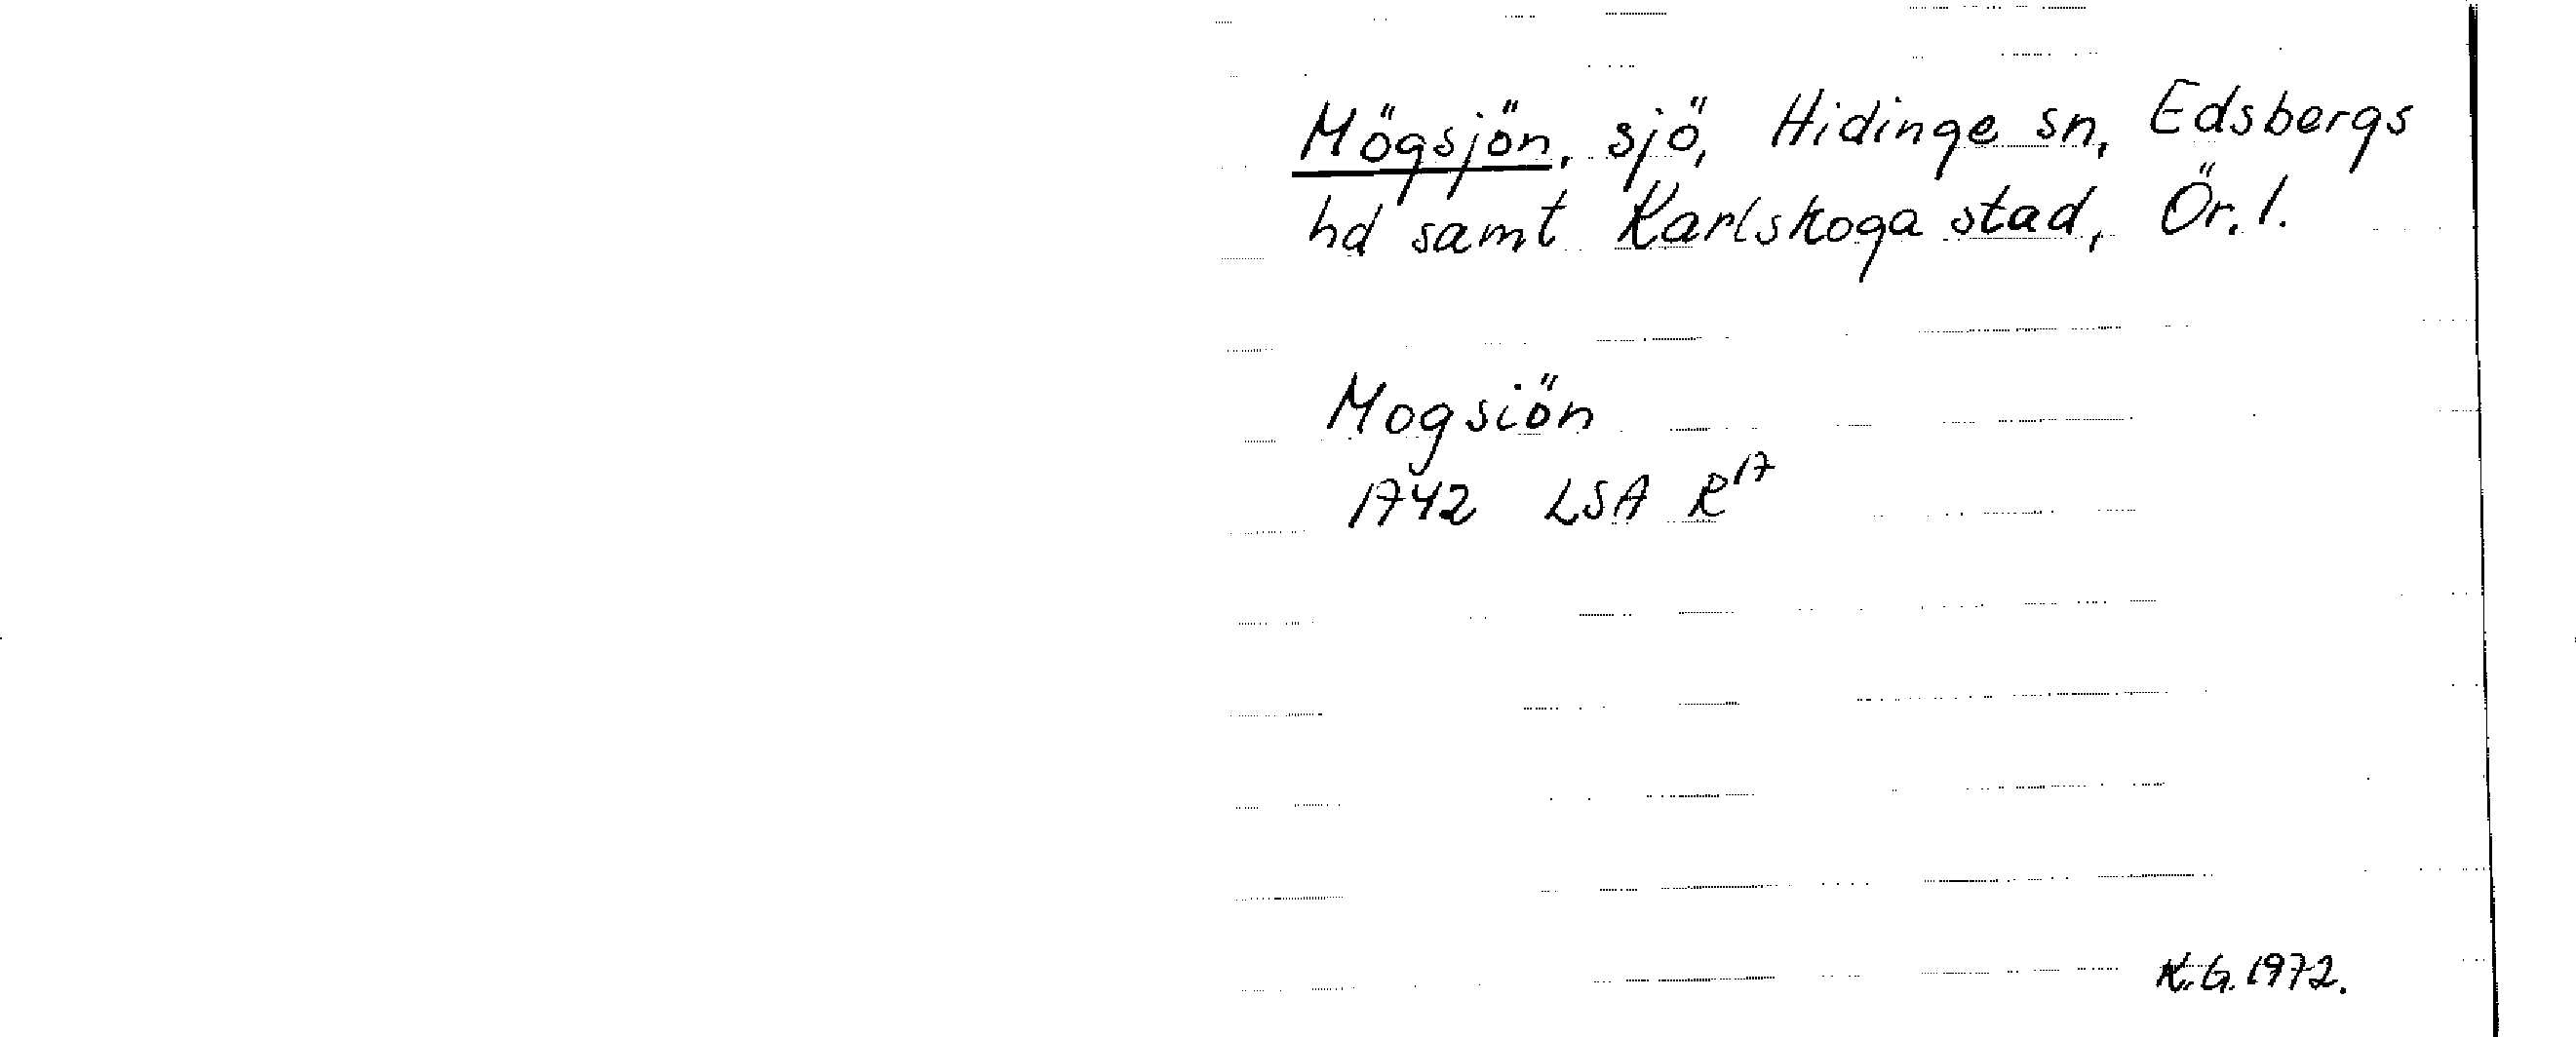 Mögsjön, sjö, Hidinge sn, Edsbergs
hd samt Karlskoga stad, Ör. l.
Mogsiön
1742 LSA R17
K.G. 1972.